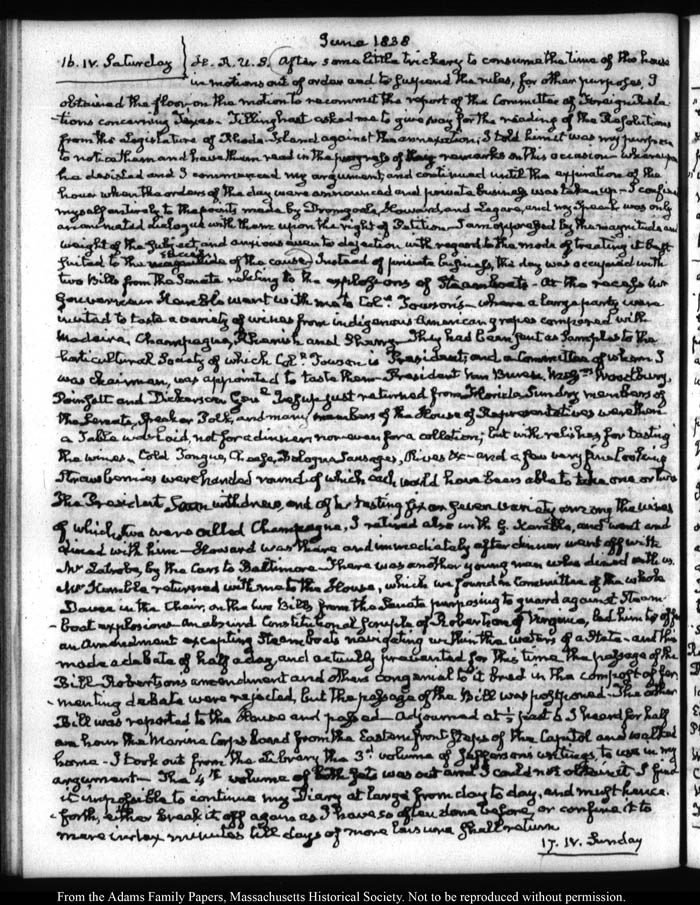 June 1838
16. IV. Saturday } H. R. U. S. After some little trickery to consume the time of the house
in motions out of order and to suspend the rules, for other purposes, I
obtained the floor on the motion to recommit the report of the Committee of Foreign Rela-
tions concerning Texas. Tillinghast asked me to give way for the reading of the Resolutions
from the Legislature of Rhode-Island against the annexation; I told him it was my purpose
to notice them and have them read in the progress of my remarks on this occasion whereupon
he desisted and I commenced my argument, and continued until the expiration of the
hour when the orders of the day were announced and private business was taken up - I confined
myself entirely to the points made by Dromgoole, Howard, and Legare, and my Speech was only
an animated dialogue with them upon the right of Petition. I am oppressed by the magnitude and
weight of the Subject, and anxious even to dejection with regard to the mode of treating it best
suited to the success of the cause. Instead of private business, the day was occupied with
two Bills from the Senate relating to the explosions of Steamboats - At the recess Mr
Gouverneur Kemble went with me to Col.ˡ Towson's - where a large party were
invited to taste a variety of wines from indigenous American grapes compared with
Madeira, Champagne, Rhenish and Sherry. They had been sent as samples to the
horticultural Society of which Col.ˡ Towson is President; and a Committee of whom I
was chairman, was appointed to taste them - President Van Buren, Woodbury,
Poinsett and Dickerson Gen.ˡ Jesup just returned from Florida Sundry members of
the Senate, Speaker Polk, and many members of the House of Representatives were there
a Table was laid, not for a dinner, nor even for a collation; but with relishes for tasting
the wines - Cold Tongue, Cheese, Bologna Sausages, Olives &c - and a few very fine looking
Strawberries were handed round of which each could have been able to take one or two
The President soon withdrew, and after tasting six or seven variety among the wines
of which two were called Champagne, I retired also with G. Kemble, and went and
dined with him - Howard was there and immediately after dinner went off with
Mr Latrobe, by the Cars to Baltimore. There was another young man who dined with us.
Mr Kemble returned with me to the House, which we found in Committee of the whole
Dawson in the Chair, on the two Bills from the Senate purposing to guard against Steam-
boat explosions. An absurd Constitutional scruple of Robertson of Virginia, led him to offer
an Amendment excepting Steamboats navigating within the waters of a State - and this
made a debate of half a day, and actually prevented for this time the passage of the
Bill. Robertsons amendment and others congenial to it bred in the compost of fer-
menting debate were rejected, but the passage of the Bill was postponed - The other
Bill was reported to the House and passed - Adjourned at ½ past 6. I heard for half
an hour the Marine Corps band from the Eastern front steps of the Capitol and walked
home - I took out from the Library the 3.ᵈ volume of Jeffersons writings, to use in my
argument - The 4.ᵗʰ volume of was out and I could not obtain it. I find
it impossible to continue my Diary at large from day to day, and must hence-
forth, either break it off again as I have so often done before, or confine it to
mere index minutes till days of more leisure shall return
17. IV. Sunday
From the Adams Family Papers, Massachusetts Historical Society. Not to be reproduced without permission.